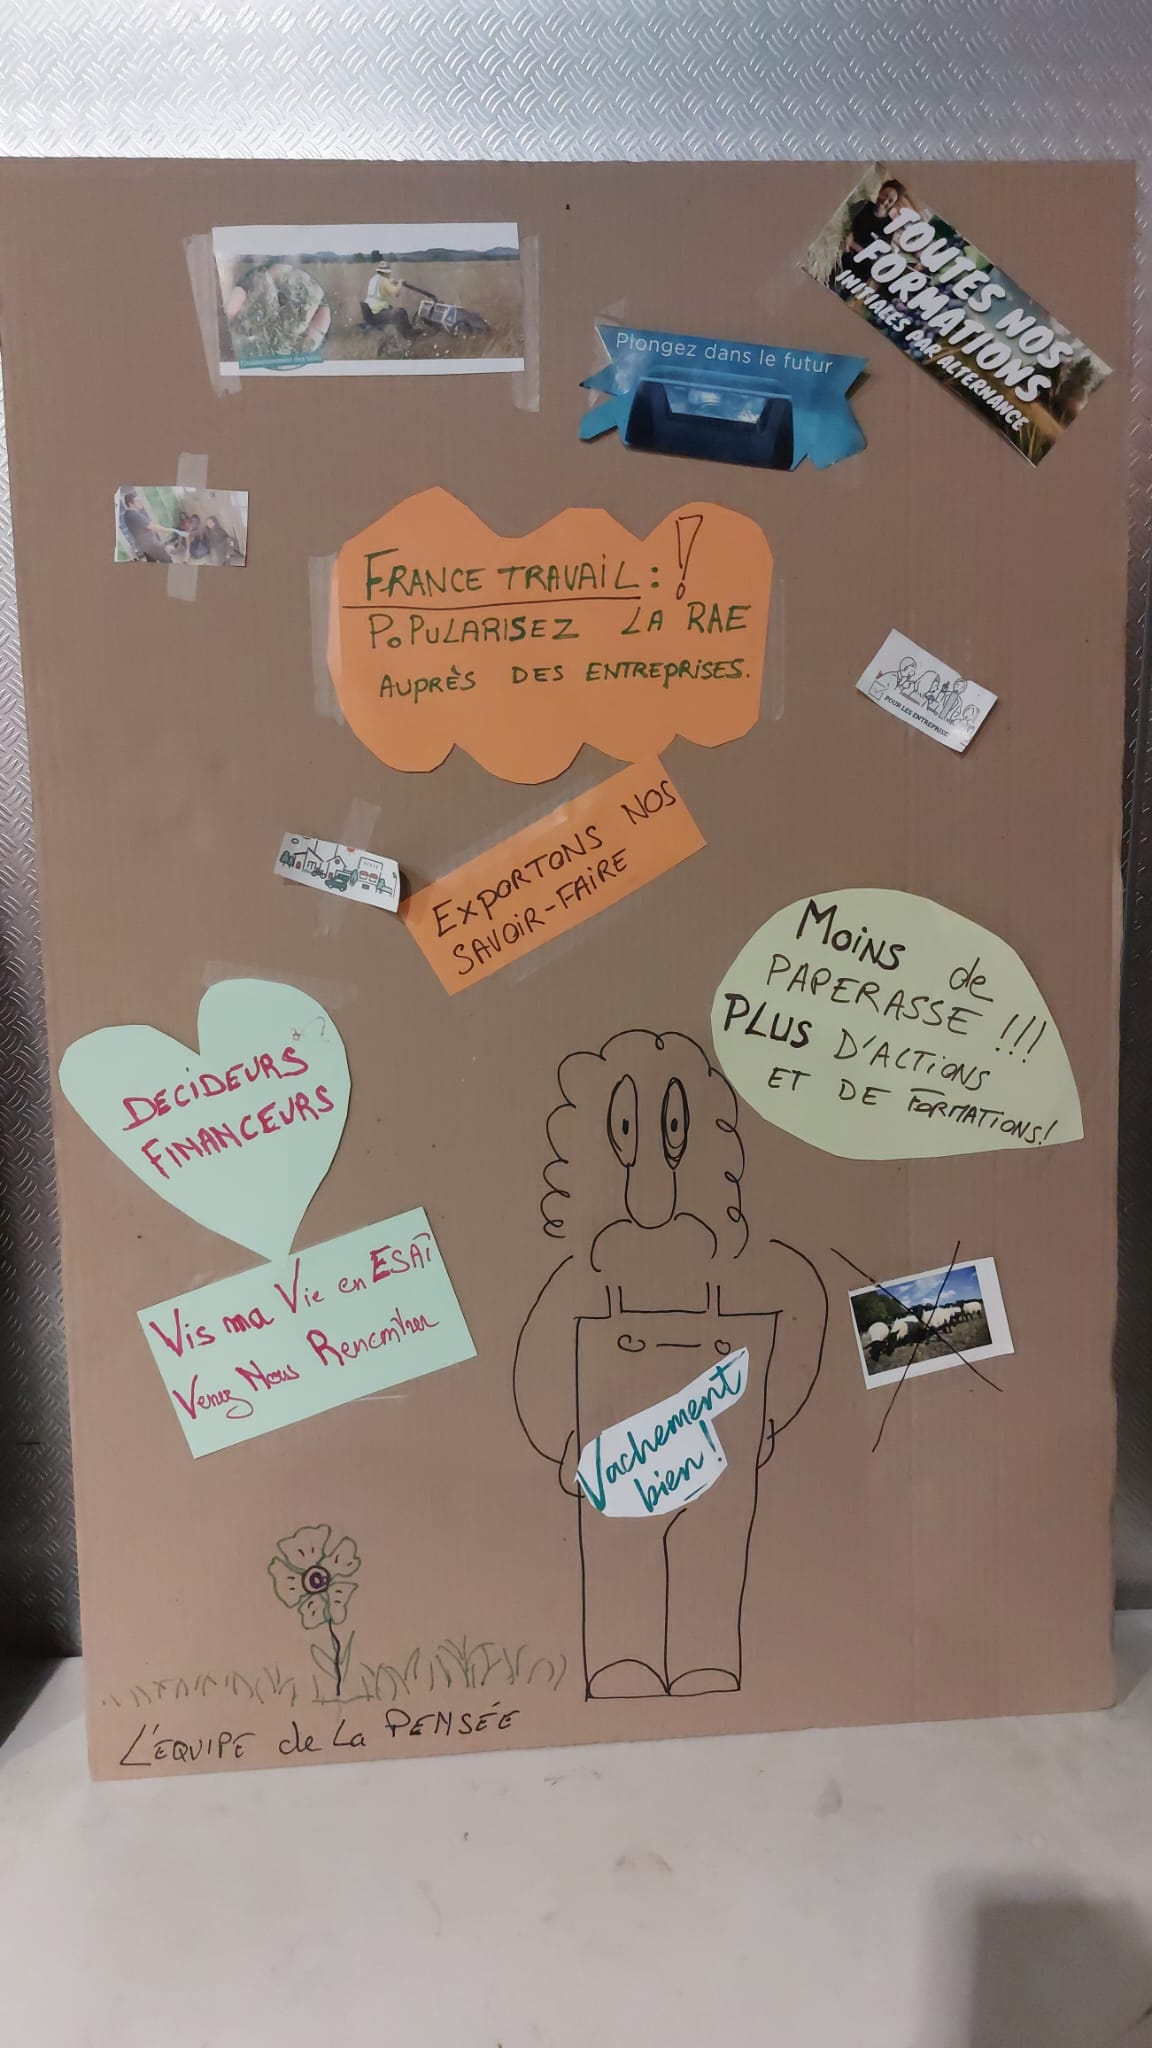 TOUTES NOS
FORMATIONS
INITIALES PAR ALTERNANCE
Plongez dans le futur
FRANCE TRAVAIL : !
POPULARISEZ LA RAE
AUPRÈS DES ENTREPRISES.
POUR LES ENTREPRISE
EXPORTONS NOS
SAVOIR-FAIRE
MOINS de
PAPERASSE !!!
PLUS D'ACTIONS
ET DE FORMATIONS!
DECIDEURS
FINANCEURS
Vis ma Vie en ESAT
Venez Nous Rencontrer
Vachement
bien!
L'ÉQUIPE de La PENSÉE